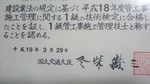 建設業法の規定に基づく平成18年度管工事
施工管理に関する1級の技術検定に合格し
たことを証し1級管工事施工管理技士と称
することを認める。
平成19年3月29日
国土交通大臣 冬柴鐵三